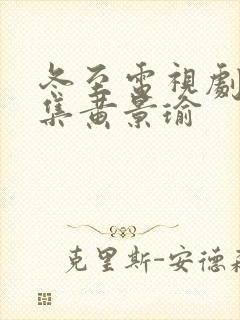 冬至電視劇
集黄景瑜
克里斯-安德森